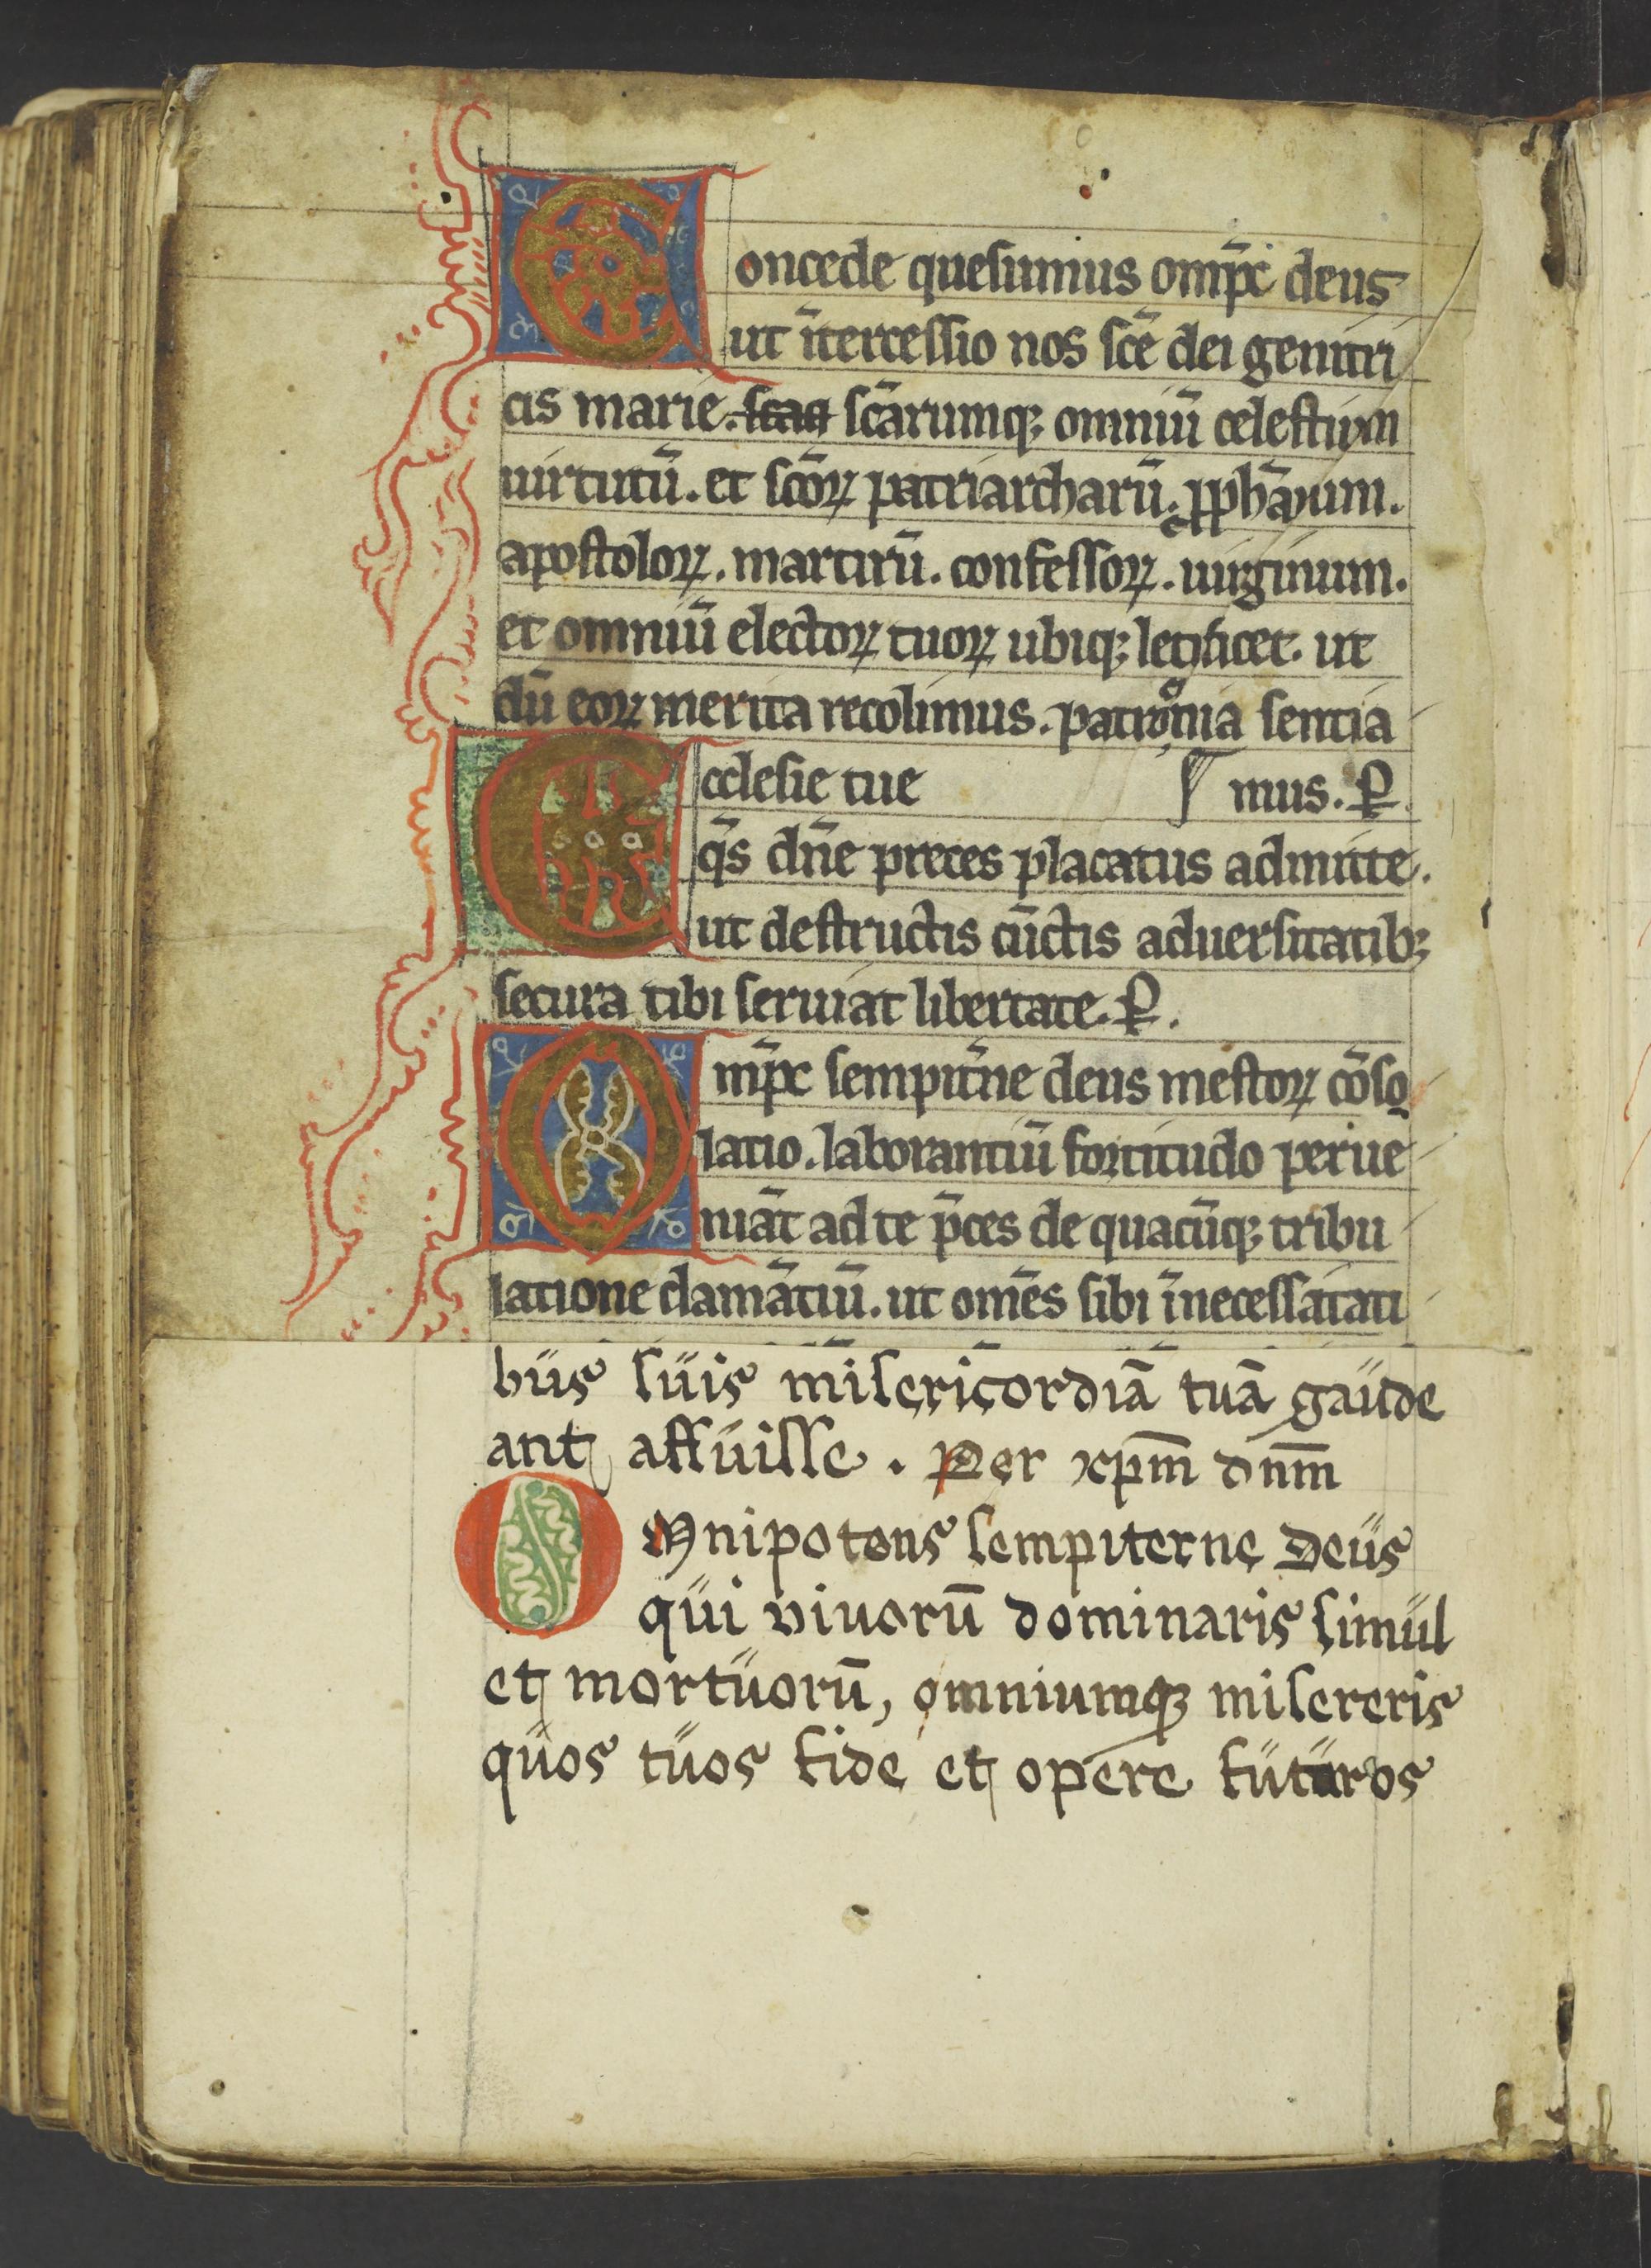 Concede quesumus omp̄c deus
ut īntercessio nos sc̄e dei genitri
cis marie. scān sc̄arumq; omniū celestium
uirtutū. et sc̄oꝝ patriarcharū. ꝓph̄arum.
apostoloꝝ. martirū. confessoꝝ. uirginum.
et omniū electoꝝ tuoꝝ ubiq; letificet. ut
dū eoꝝ merita recolimus. patrocinia sentia
Ecclesie tue mus. P̲.
q̄s dn̄e preces placatus admitte.
ut destructis cūctis aduersitatib;
secura tibi seruiat libertate. P̲.
Omp̄c sempit̄ne deus mestoꝝ cōso
latio. laborantiū fortitudo perue
niāt ad te p̄ces de quacūq; tribu
latione clamātiū. ut omēs sibi īnecessitati
bus suis misericordiā tuā gaude
ant affuisse. Per xpm̄ dnm̄
Omnipotens sempiterne Deus
qui viuorū dominaris simul
et mortuorū, omniumqꝫ misereris
quos tuos fide et opere futuros